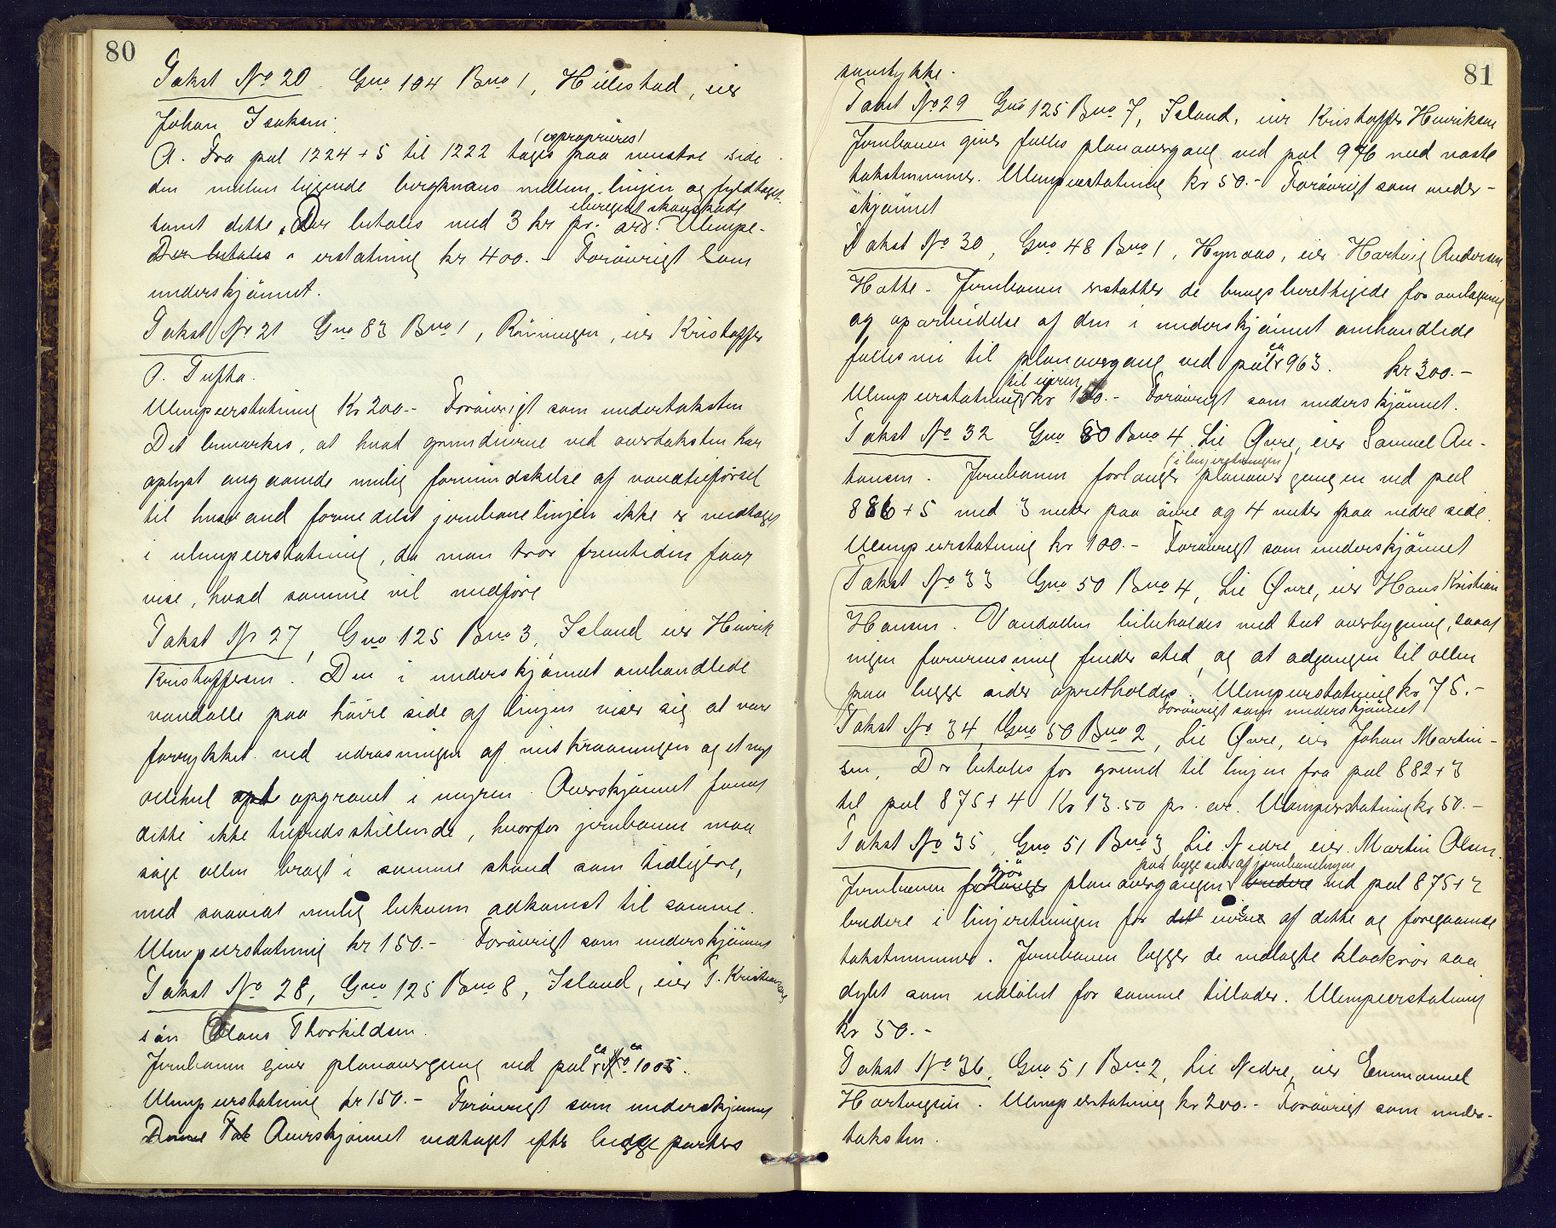 80
Takst No 20. Gno 104 Bno 1, Hillestad, eier
Johan Isaksen.
A. Fra pæl 1224+5 til 1222 tages (exproprieres) paa venstre side
den mellem liggende bergknaus mellem linjen og fyldtaget
samt dette. Der betales med 3 kr pr. ar. iberegnet skovskade Ulempe-
Der betales erstatning kr 400.- Forøvrigt som
underskjønnet.
Takst Nr 21 Gno 83 Bno 1, Rönningen, eier Kristoffer
O. Tufta.
Ulempeerstatning Kr 200.- Forøvrigt som undertaksten
Det bemærkes, at hvad grundeierne ved overtaksten har
oplyst angaaende mulig formindskelse af vandtilførsel
til hvas and formedelst jernbanelinjen ikke er medtaget
i ulempeerstatning, da man tror fremtiden faar
vise, hvad samme vil medføre
Takst Nr 27, Gno 125 Bno 3, Island eier Henrik
Kristoffersen. Den i underskjønnet omhandlede
vandolle paa høire side af linjen viser sig at være
forrykket ved udrasninger af netskraaningen og et nyt
ollehul opt opgravet i myren. Overskjønnet fandt
dette ikke tilfredsstillende, hvorfor jernbanen maa
søge ollen bragt i samme stand som tidligere,
med saavidt mulig bekvem adkomst til samme.
Ulempeerstatning kr 150.- Forøvrigt som underskjønnet
Takst No 28, Gno 125 Bno 8, Island, eier T. Kristiansens
søn Olaus Thorkildsen.
Jernbanen giver planovergang ved pæl ca No ca 1005.
Ulempeerstatning kr 150.- Forøvrigt som underskjønnet
Denne Tak Overskjønnet vedtaget efter begge parters
81
samtykke.
Takst No 29 Gno 125 Bno 7, Island, eier Kristoffer Henriksen
Jernbanen giver fælles planovergang ved pæl 976 med næste
takstnummer. Ulempeerstatning kr 50.- Forøvrigt som under-
skjønnet
Takst No 30, Gno 48 Bno 1, Hynaas, eier Hartvig Andersen
Hotte. Jernbanen erstatter de brugsberettigede for anlægning
og oparbeidelse af den i underskjønnet omhandlede
fællesvei til planovergang ved pæl ca 963. kr 300.-
Ulempeerstatning til eieren kr 150.- Forøvrigt som underskjønnet.
Takst No 32 Gno 50 Bno 4 Lie Øvre, eier Samuel An-
tonsen. Jernbanen forlænger (i linjeretningen) planovergangen ved pæl
886+5 med 3 meter paa øvre og 4 meter paa nedre side.
Ulempeerstatning kr 100.- Forøvrigt som underskjønnet
Takst No 33 Gno 50 Bno 4, Lie Øvre, eier Hans Kristian
Hansen. Vandollen bibeholdes med tæt overbygning, saaat
ingen forurensning finder sted, og at adgangen til ollen
paa begge sider opretholdes. Ulempeerstatning kr 75.-
Forøvrigt som underskjønnet
Takst No 34, Gno 50 Bno 2, Lie Øvre, eier Johan Martin-
sen. Der betales for grund til linjen fra pæl 882+3
til pæl 875+4 Kr 13.50 pr. ar. Ulempeerstatning kr 50.-
Takst No 35, Gno 51 Bno 3, Lie Nedre, eier Martin Olsen.
Jernbanen forlænger gjør planovergangen paa begge sider af jernbanelinjen bredere ved pæl 875+2
bredere i linjeretningen for dett eierne af dette og foregaaende
takstnummer. Jernbanen lægger de nedlagte kloakrør saa
dybt som udløbet for samme tillader. Ulempeerstatning
kr 50.-
Takst No 36, Gno 51 Bno 2, Lie Nedre, eier Emmanuel
Hartvigsen. Ulempeerstatning kr 200.- Forøvrigt som under-
taksten.